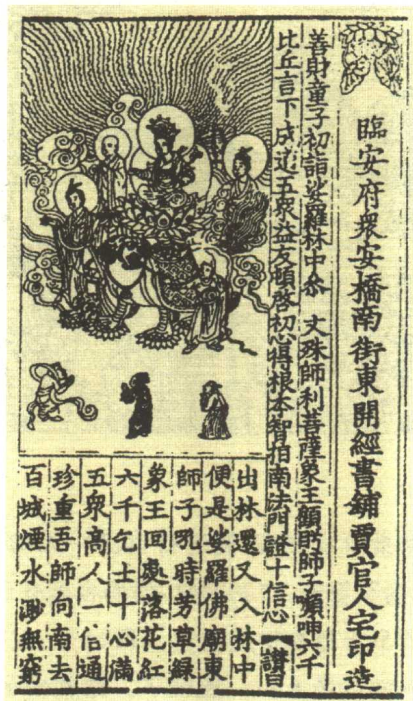 臨安府衆安橋南街東開經書鋪賈官人宅印造
善財童子初詣娑羅林中叅 文殊師利菩薩象王顧眄師子嚬呻六千
比丘言下成道五衆益友頓啓初心得根本智指南法門證十信心 讚曰
出林還又入林中
便是娑羅佛廟東
師子吼時芳草綠
象王回處落花紅
六千乞士十心滿
五衆高人一信通
珍重吾師向南去
百城煙水渺無窮